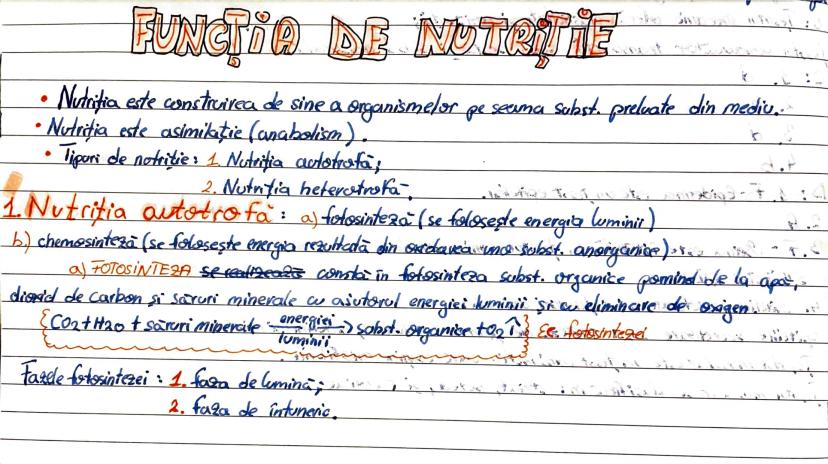 FUNCȚIA DE NUTRIȚIE
• Nutriția este construirea de sine a organismelor pe seama subst. preluate din mediu.
• Nutriția este asimilație (anabolism).
• Tipuri de nutriție: 1. Nutriția autotrofă;
2. Nutriția heterotrofă.
1. Nutriția autotrofă: a) fotosinteză (se folosește energia luminii)
b) chemosinteză (se folosește energia rezultată din oxidarea unor subst. anorganice)
a) FOTOSINTEZA se realizează constă în fotosinteza subst. organice pornind de la apă,
dioxid de carbon și săruri minerale cu ajutorul energiei luminii și cu eliminare de oxigen.
{CO2+H2O + săruri minerale energiei luminii → subst. organice + O2↑} Ec. fotosintezei
Fazele fotosintezei: 1. faza de lumină;
2. faza de întuneric.